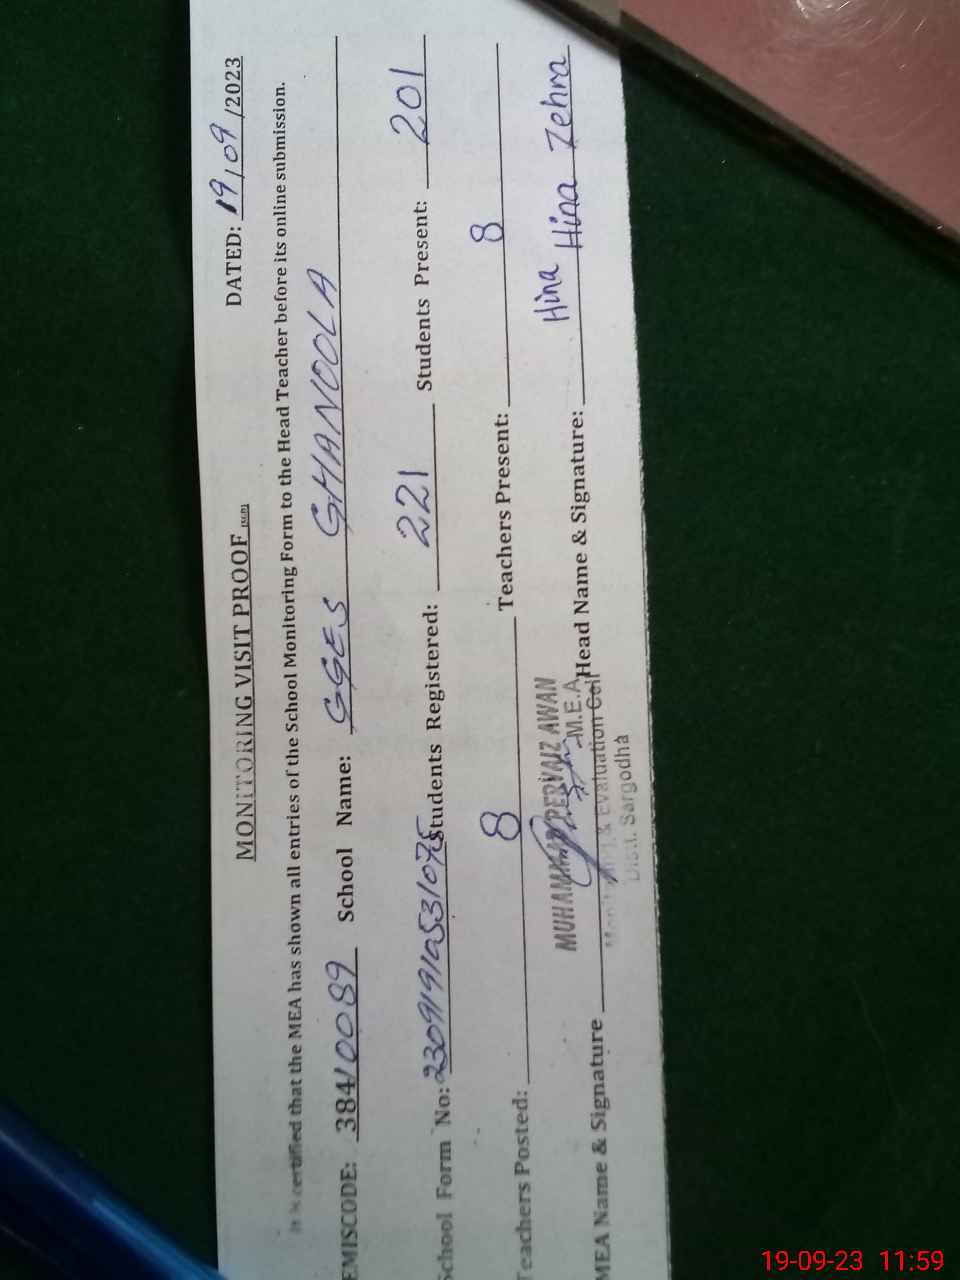 MONITORING VISIT PROOF
DATED: 19/09/2023
It is certified that the MEA has shown all entries of the School Monitoring Form to the Head Teacher before its online submission.
EMISCODE: 38410089 School Name: GGES GHANOOLA
School Form No: Students Registered: 221 Students Present: 201
Teachers Posted: 8 Teachers Present: 8
MUHAMMAD PERVAIZ AWAN
Hina
MEA Name & Signature M.E.A Head Name & Signature: Hina Zehra
Monitoring & Evaluation Cell
Distt. Sargodha
19-09-23 11:59